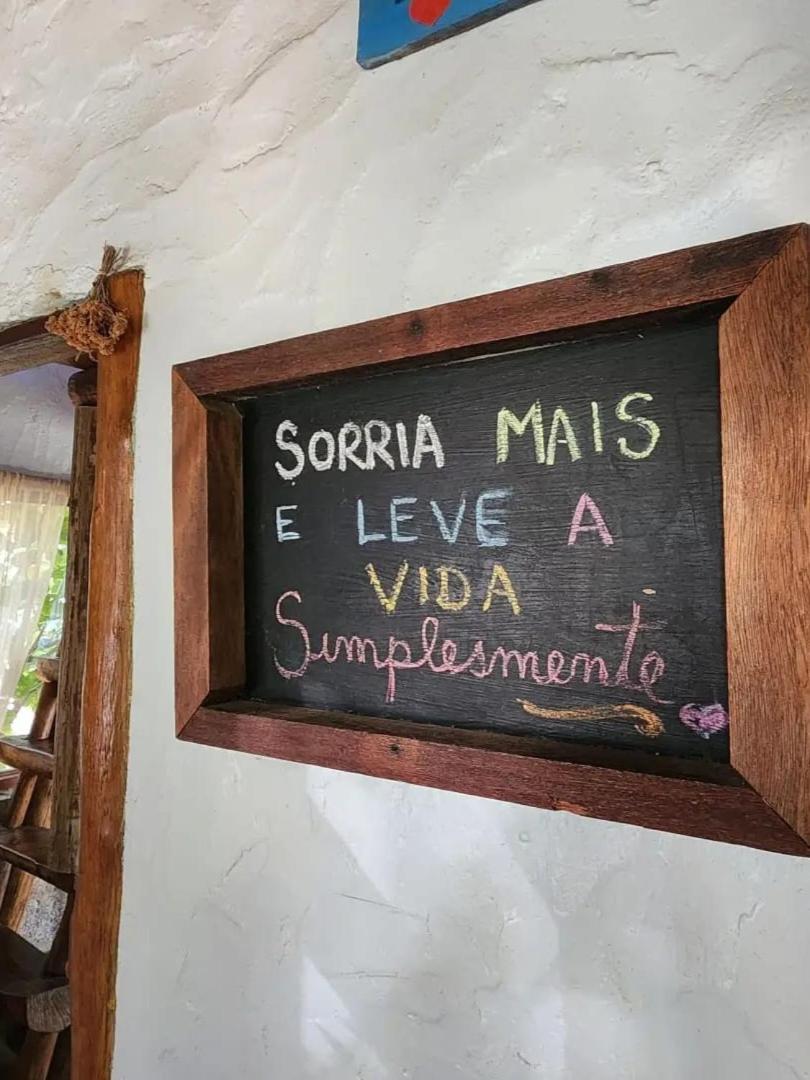 SORRIA MAIS
E LEVE A
VIDA
Simplesmente